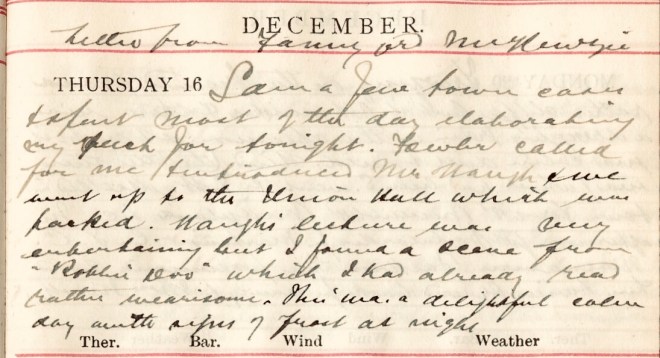 DECEMBER.
Letter from Fanny and McKenzie
THURSDAY 16 Saw a few town cases
& spent most of the day elaborating
my speech for tonight. Fowler called
for me & introduced Mr Waugh & we
went up to the Union Hall which was
packed. Waugh's lecture was very
entertaining but I found a scene from
"Robbie Doo" which I had already read
rather wearisome. This was a delightful calm
day with signs of frost at night
Ther. Bar. Wind Weather